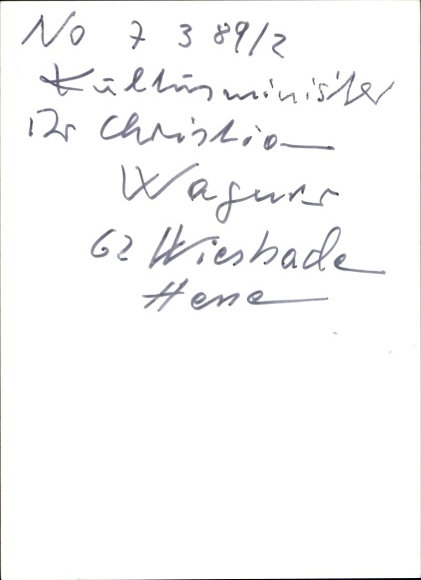 No 7 3 89/2
Kultusminister
Dr Christian
Wagner
62 Wiesbade
Hesse